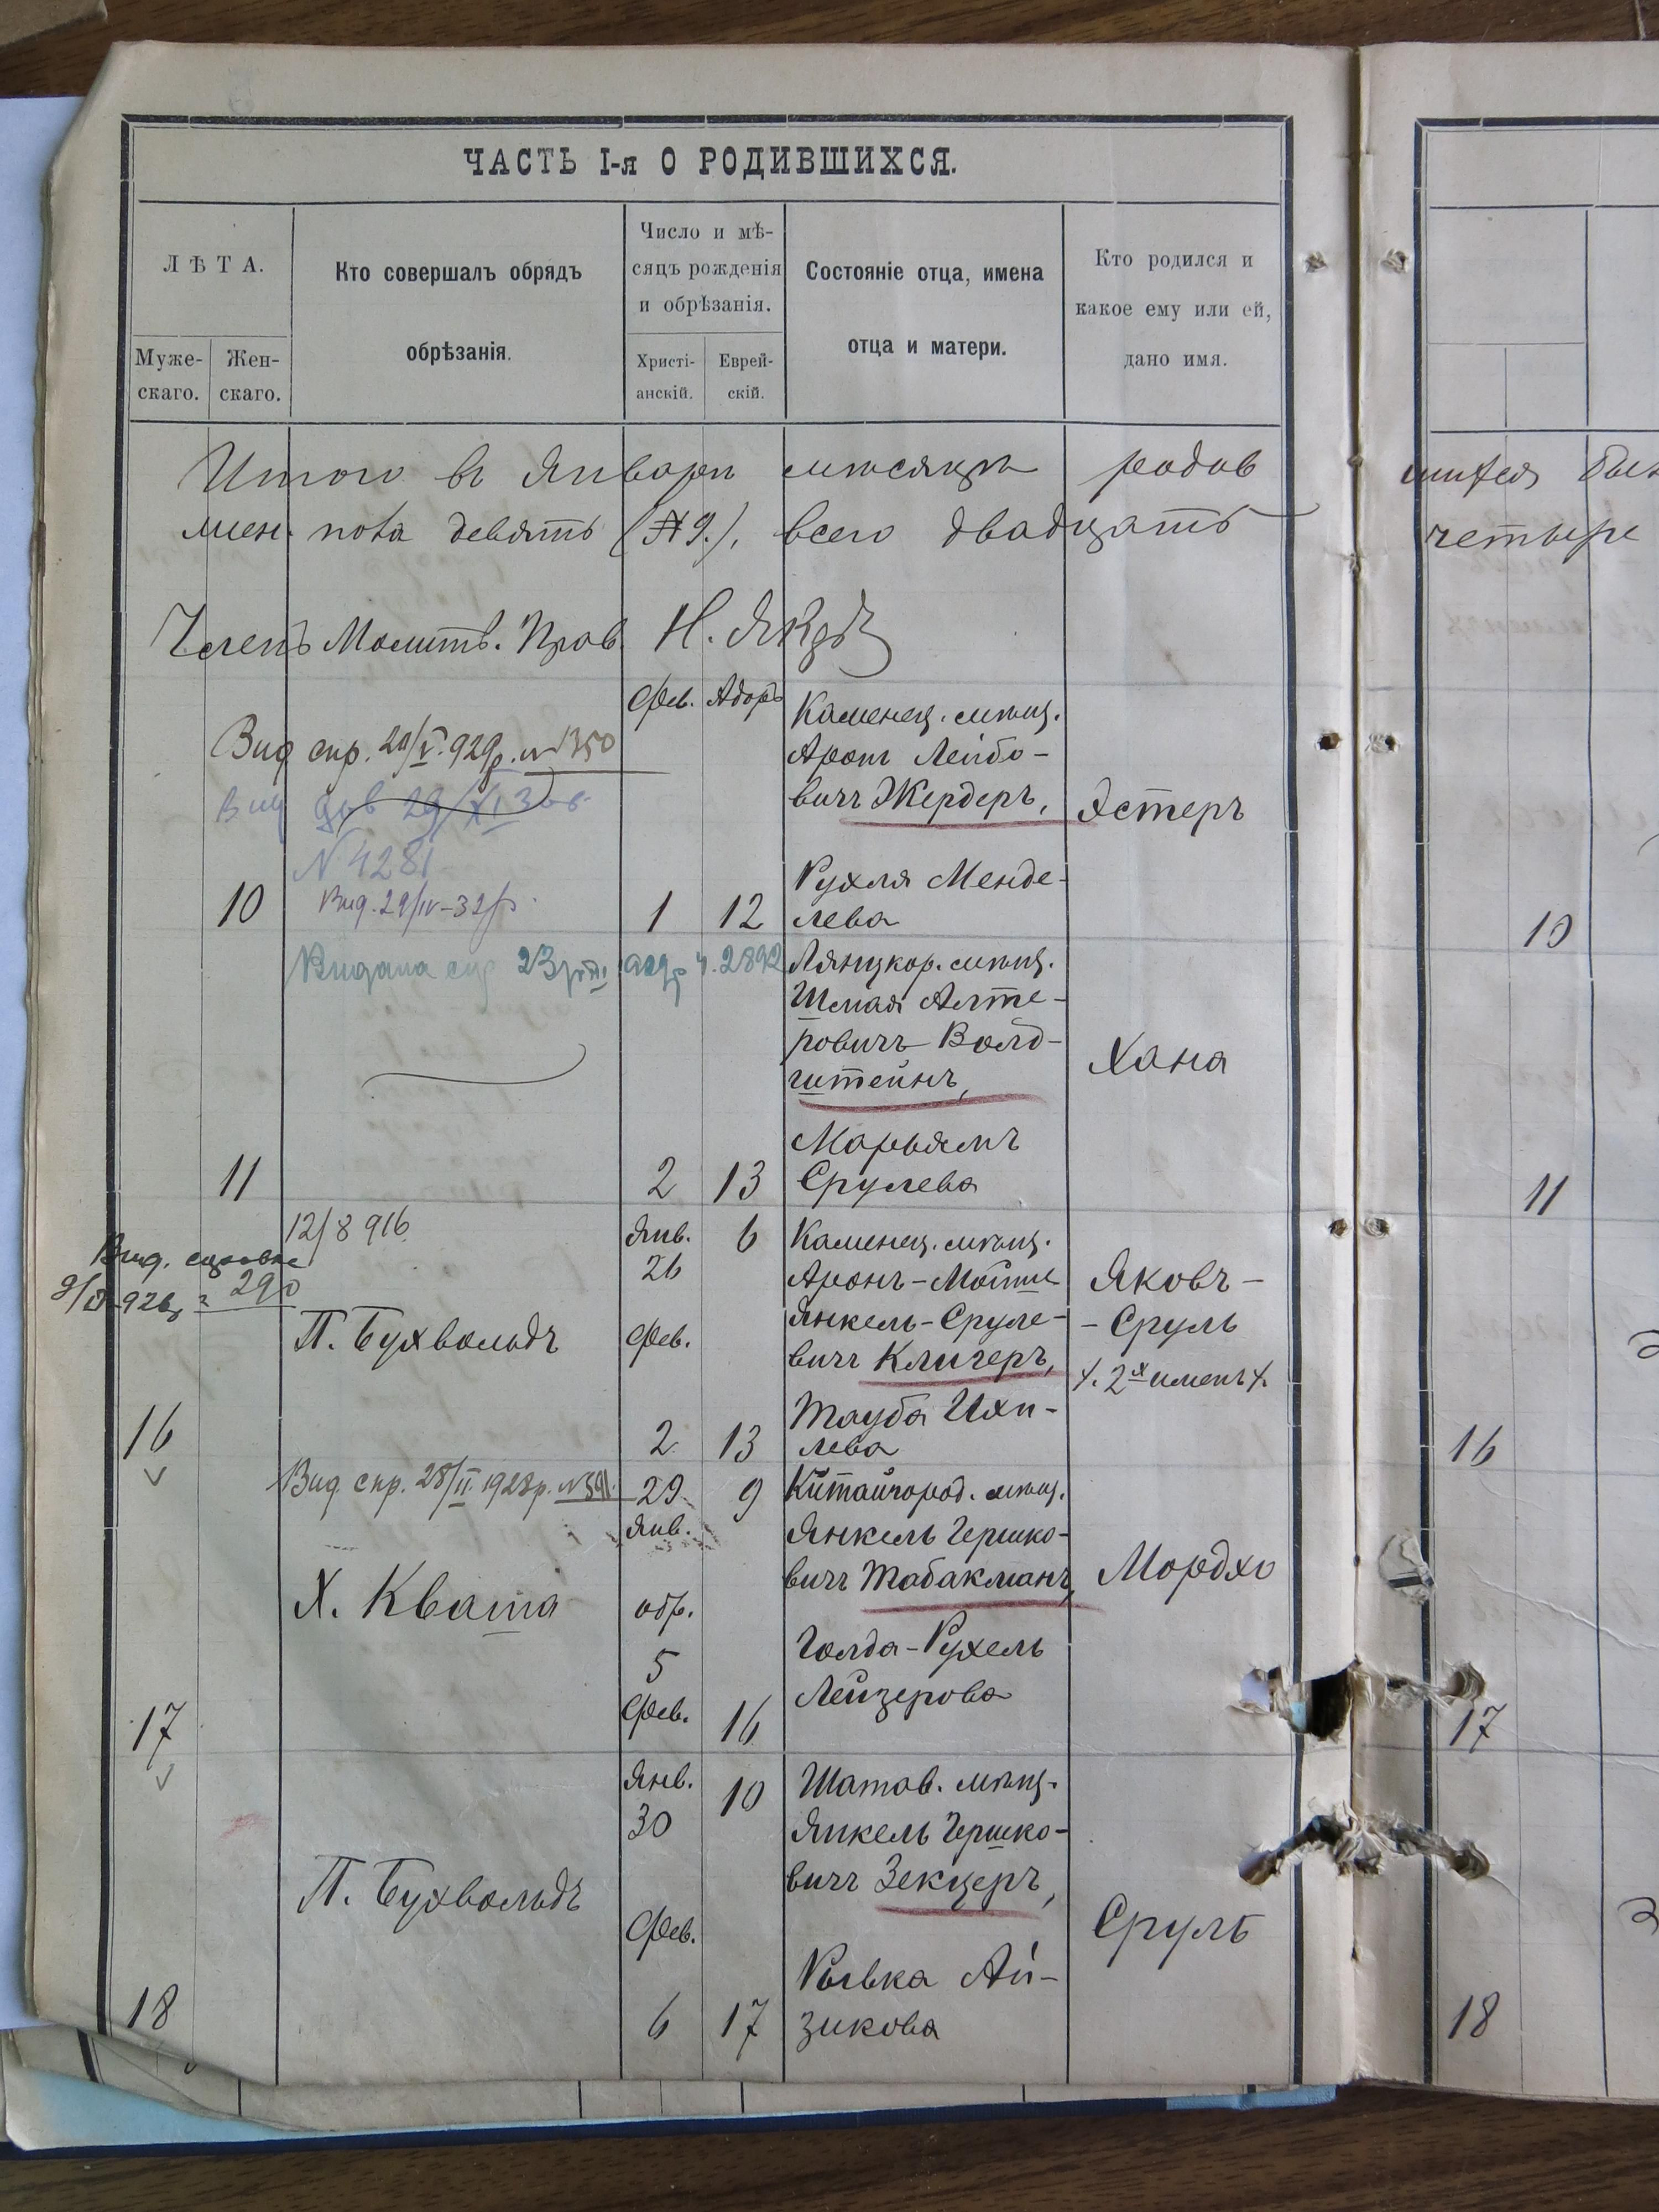 ЧАСТЬ I-я О РОДИВШИХСЯ.
ЛѢТА.
Муже-
скаго.
Жен-
скаго.
Кто совершалъ обрядъ
обрѣзанія.
Число и мѣ-
сяцъ рожденія
и обрѣзанія.
Христі-
анскій.
Еврей-
скій.
Состояніе отца, имена
отца и матери.
Кто родился и
какое ему или ей,
дано имя.
Итого въ Январѣ мѣсяцѣ родив
жен. пола девять (№ 9.), всего двадцать
четыре
Членъ Молитв. Прав. Н.
Фев. Адаръ
Вид спр. 29/V. 929р. № 1350
Вид 29/XI
N 4281
Вид. 29/IV-32р.
10
1 12
Каменец. мѣщ.
Аронъ Лейбо-
вичъ Жердеръ,
Рухля Менде-
лева
Эстеръ
10
Видана 23 ч. 2892
11
2 13
Лянцкор. мѣщ.
Шмая Алте-
ровичъ Волд-
штейнъ,
Марьямъ
Срулева
Хана
11
12/8 916
Вид.
290
П. Бухвольдъ
16
Янв. 6
26
Фев.
2 13
Каменец. мѣщ.
Аронъ-Мойше
Янкель-Сруле-
вичъ Клигеръ,
Тауба Ихи-
лева
Яковъ-
-Сруль
2х именъ
16
Вид спр. 28/II 1928р. № 591.
Х. Кваша
17
29 9
Янв.
обр.
5
Фев. 16
Китайгород. мѣщ.
Янкель Гершко-
вичъ Табакманъ,
Голда-Рухель
Лейзерова
Мордхо
17
П. Бухвольдъ
18
Янв. 10
30
Фев.
6 17
Шатав. мѣщ.
Янкель Гершко-
вичъ Зекцеръ,
Рывка Ай-
зикова
Сруль
18